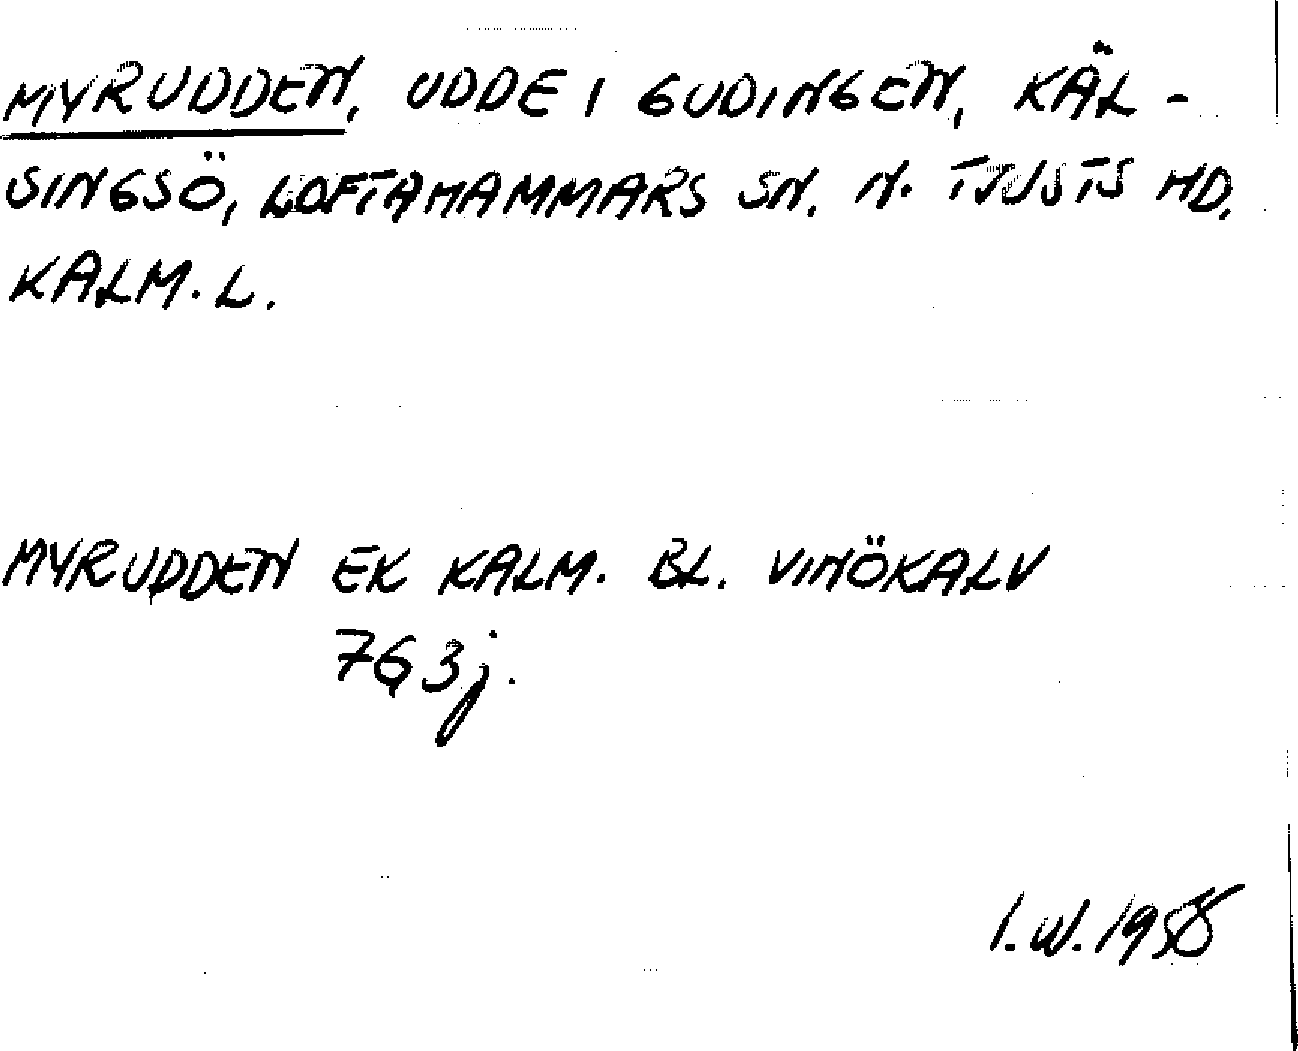 MYRUDDEN, UDDE I GUDINGEN, KÄL-
SINGSÖ, LOFTAHAMMARS SN. N. TJUSTS HD.
KALM. L.
MYRUDDEN EK KALM. BL. VINÖKALV
7G3j.
I.W. 1958